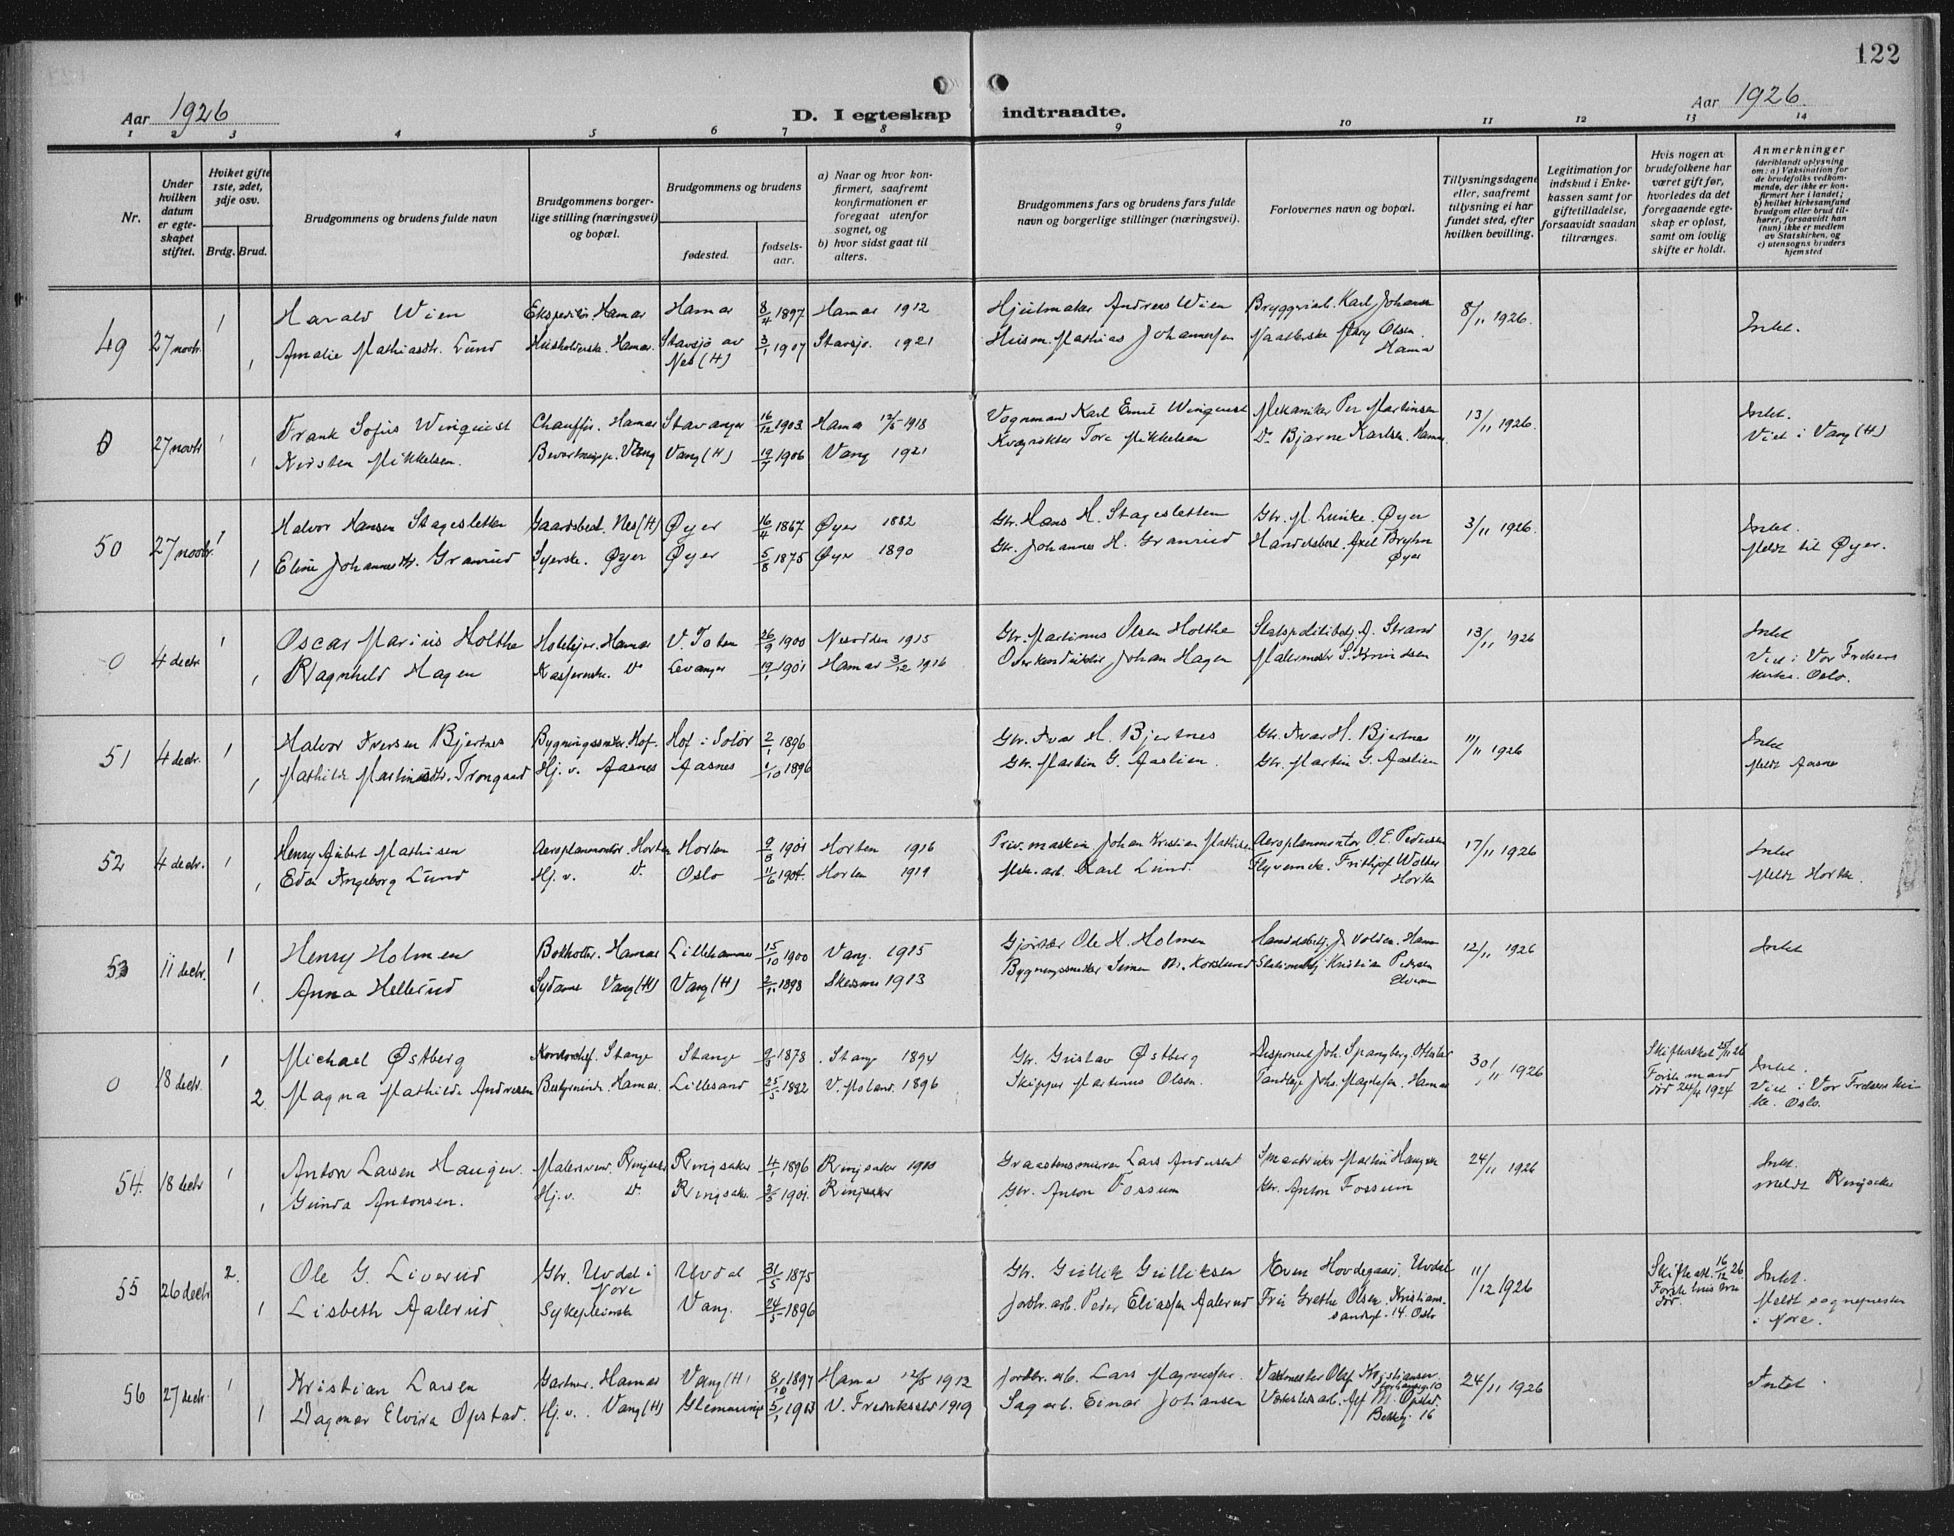 122
Aar 1926
D. I egteskap indtraadte.
Aar 1926.
1 2 3 4 5 6 7 8 9 10 11 12 13 14
Nr.
Under hvilken datum er egte-skapet stiftet.
Hviket gifte 1ste, 2det, 3dje osv.
Brdg. Brud.
Brudgommens og brudens fulde navn
Brudgommens borger-lige stilling (næringsvei) og bopæl.
Brudgommens og brudens
fødested.
fødsels-aar.
a) Naar og hvor kon-firmert, saafremt konfirmationen er foregaat utenfor sognet, og
b) hvor sidst gaat til alters.
Brudgommens fars og brudens fars fulde navn og borgerlige stillinger (næringsvei).
Forlovernes navn og bopæl.
Tillysningsdagene eller, saafremt tillysning ei har fundet sted, efter hvilken bevilling.
Legitimation for indskud i Enke-kassen samt for giftetilladelse, forsaavidt saadan tiltrænges.
Hvis nogen av brudefolkene har været gift før, hvorledes da det foregaaende egte-skap er opløst, samt om lovlig skifte er holdt.
Anmerkninger (deriblandt oplysning om: a) Vaksination for de brudefolks vedkom-mende, der ikke er kon-firmert her i landet; b) hvilket kirkesamfund brudgom eller brud til-hører, forsaavidt han (hun) ikke er medlem av Statskirken, og c) utensogns bruders hjemsted
49 27 novbr. 1 Harald Wien Ekspeditør. Hamar Hamar 8/4 1897 Hamar 1912 Hjulmaker Andreas Wien Bryggeriarb. Karl Johansen 8/11 1926. Intet.
1 Amalie Mathiasdtr. Lund Husholderske. Hamar. Stavsjø av Nes (H) 3/1 1907 Stavsjø. 1921 Husm. Mathias Johannessen Mary Olsen Hamar
0 27 novbr 1 Frank Sofus Winquist Chauffør. Hamar Stavanger 16/12 1903 Hamar 12/5 1918 Vognmand Karl Emil Winquist Mekaniker Per Martinsen 13/11 1926. Intet.
1 Kirsten Mikkelsen. Vang Vang (H) 19/7 1906 Vang 1921 Tore Mikkelsen Do Bjarne Karlsen. Hamar Viet i Vang (H)
50 27 novbr. 1 Halvor Hansen Stagesletten Gaardsbest. Nes (H) Øyer 16/4 1867 Øyer 1882 Gbr. Hans H. Stagesletten Gbr. M. Lunke. Øyer 3/11 1926. Intet.
1 Eline Johannesdtr. Granrud Syerske. Øyer Øyer 5/8 1875 Øyer 1890 Gbr. Johannes H. Granrud Handelsbest. Axel Bryhn Øyer Meldt til Øyer.
0 4 decbr. 1 Oscar Marius Holthe Hoteleier. Hamar V. Toten 26/9 1900 Nesodden 1915 Gbr. Martinus Olsen Holthe A. Strand 13/11 1926 Intet
1 Ragnhild Hagen Kasserske. Do Levanger 19/1 1901 Hamar 3/12 1916 Overkonduktør Johan Hagen Malermester S. Knudsen Viet i Vor Frelsers kirke. Oslo.
51 4 decbr. 1 Halvor Iversen Bjertnes Bygningssnekr. Hof. Hof i Solør 2/1 1896 Gbr. Ivar H. Bjertnes Gbr. Ivar H. Bjertnes 11/11 1926 Intet
1 Mathilde Martinsdtr. Trongaard Hj. v. Aasnes Aasnes 1/10 1896 Gbr. Martin G. Aaslien. Gbr. Martin G. Aaslien Meldt Aasnes
52 4 decbr. 1 Henry Aubert Mathisen Aeroplanmontør. Horten Horten 9/8 1901 Horten 1916 Johan Kristian Mathisen Aeroplanmontør O. E. Pedersen 17/11 1926 Intet
1 Eda Ingeborg Lund Hj. v. Do Oslo 11/6 1904. Horten 1919 Karl Lund. Frithjof Wolter Horten Meldt Horten.
53 11 decbr. 1 Henry Holmen Hamar Lillehammer 15/10 1900 Vang. 1915 Gjørtler Ole H. Holmen J. Volden. Hamar 12/11 1926 Intet
1. Anna Hellerud Sydame Vang (H) Vang (H) 2/11 1898 1913 Bygningssnekker Simen Kristian Pedersen Elverum
0 18 decbr. 1 Michael Østberg Kontorchef. Stange Stange 9/3 1878 Stange 1894 Gbr. Gustav Østberg Disponent Joh. Spangberg. Ottestad 30/11 1926 Skifteattest 26 Intet.
2 Magna Mathilde Andresen Bestyrerinde. Hamar. Lillesand 25/5 1882 V. Moland. 1896 Skipper Martinus Olsen. Tandlæge Joh. Hamar Første mand død 24/4 1924 Viet i Vor Frelsers kirke. Oslo.
54. 18 decbr 1 Anton Larsen Haugen. Malersvend. Ringsaker Ringsaker 4/1 1896 Ringsaker Lars Andersen Martin Haugen 24/11 1926 Intet.
1 Gunda Antonsen. Hj. v. Do Ringsaker 3/5 1901. Ringsaker Gbr. Anton Fossum Gbr. Anton Fossum Meldt Ringsaker
55 26 decbr 2. Ole G. Liverud Gbr. Uvdal i Nore Uvdal 31/5 1875 Gbr. Gullik Gulliksen Even Hovdegaard. Uvdal 11/12 1926 Skifteatt. 16/12 26 Intet.
1 Lisbeth Aalerud Sykepleierske Vang. 24/5 1896 Jordbr. arb. Peder Eliassen Aalerud Fru Grethe Olsen. Kristians-sandsgt. 14. Oslo Første hustru død. Meldt sogneprester i Nore.
56 27 decbr. 1 Kristian Larsen Gartner. Hamar Vang (H) 8/10 1897 Hamar 12/5 1912 Jordbr. arb. Lars Magnussen. Olaf Kristiansen. 10 24/11 1926 Intet.
1 Dagmar Elvira Opstad. Hj. v. Vang (H) Glemminge 5/1 1903 V. Fredrikstad 1919 Sagarb. Einar Johansen Alf M. Opstad. 16